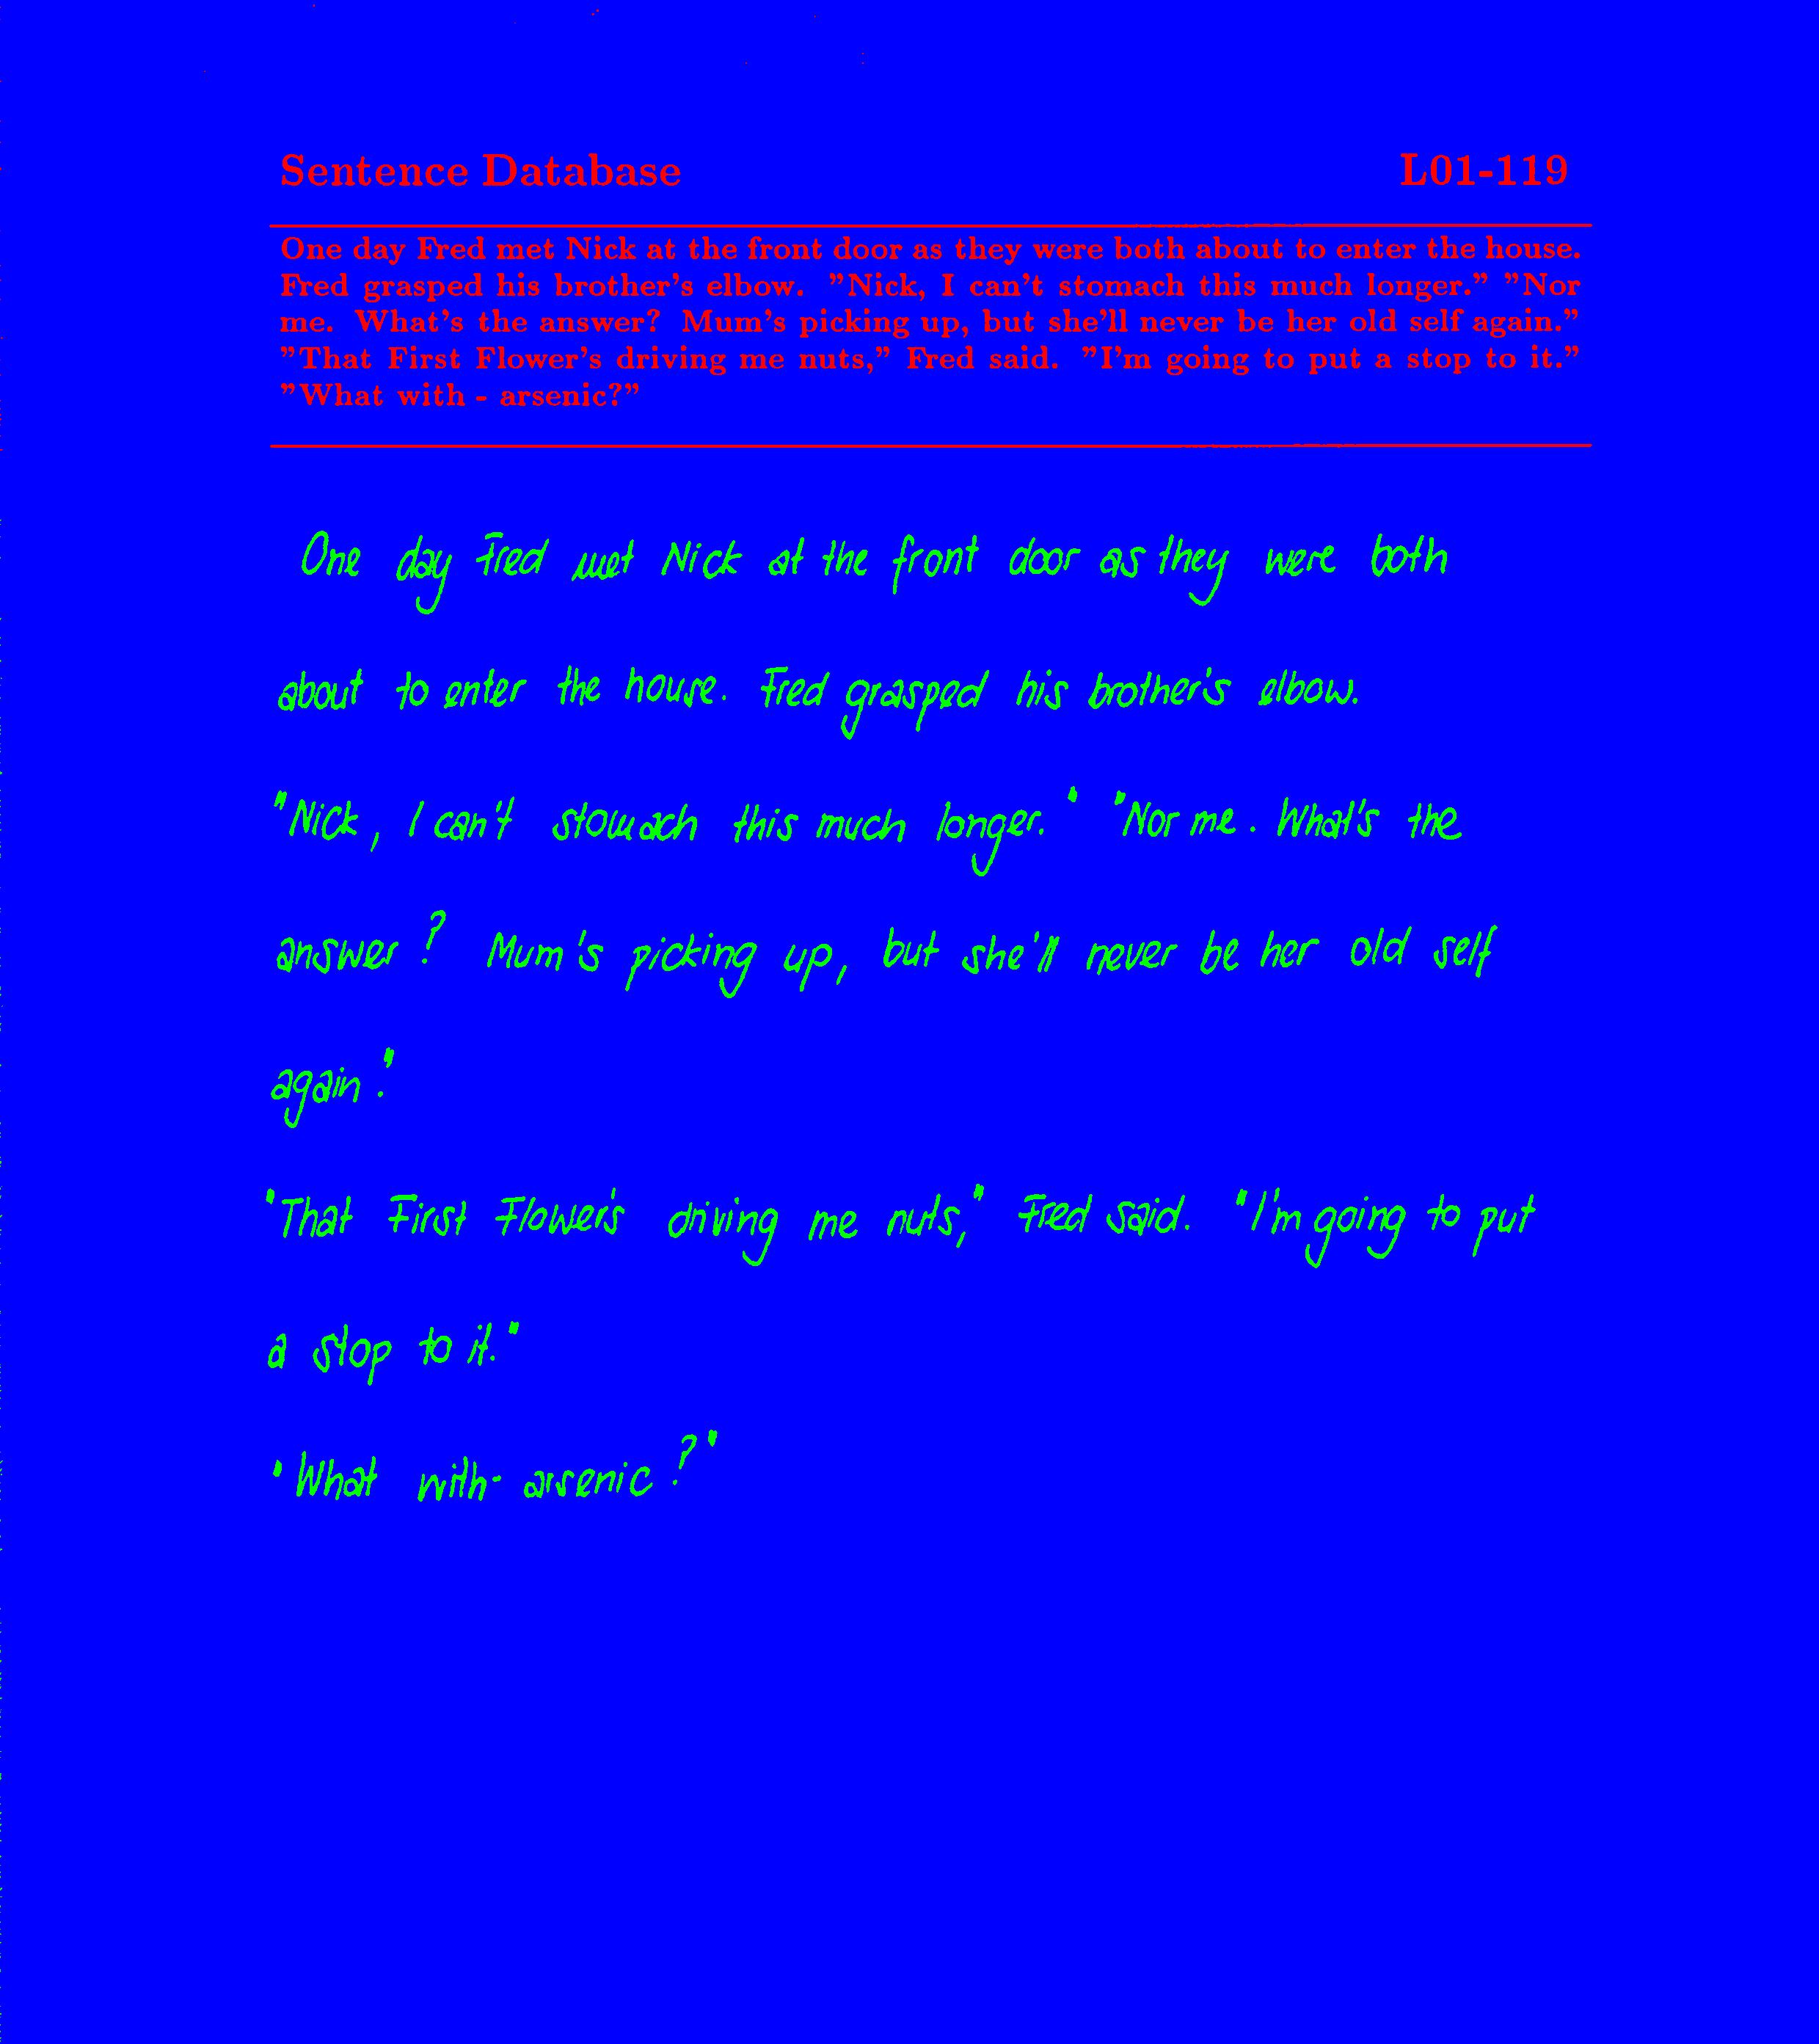 Sentence Database L01-119
One day Fred met Nick at the front door as they were both about to enter the house.
Fred grasped his brother's elbow. "Nick, I can't stomach this much longer." "Nor
me. What's the answer? Mum's picking up, but she'll never be her old self again."
"That First Flower's driving me nuts," Fred said. "I'm going to put a stop to it."
"What with - arsenic?"
One day Fred met Nick at the front door as they were both
about to enter the house. Fred grasped his brother's elbow.
"Nick, I can't stomach this much longer." "Nor me. What's the
answer? Mum's picking up, but she'll never be her old self
again."
"That First Flower's driving me nuts," Fred said. "I'm going to put
a stop to it."
"What with - arsenic?"